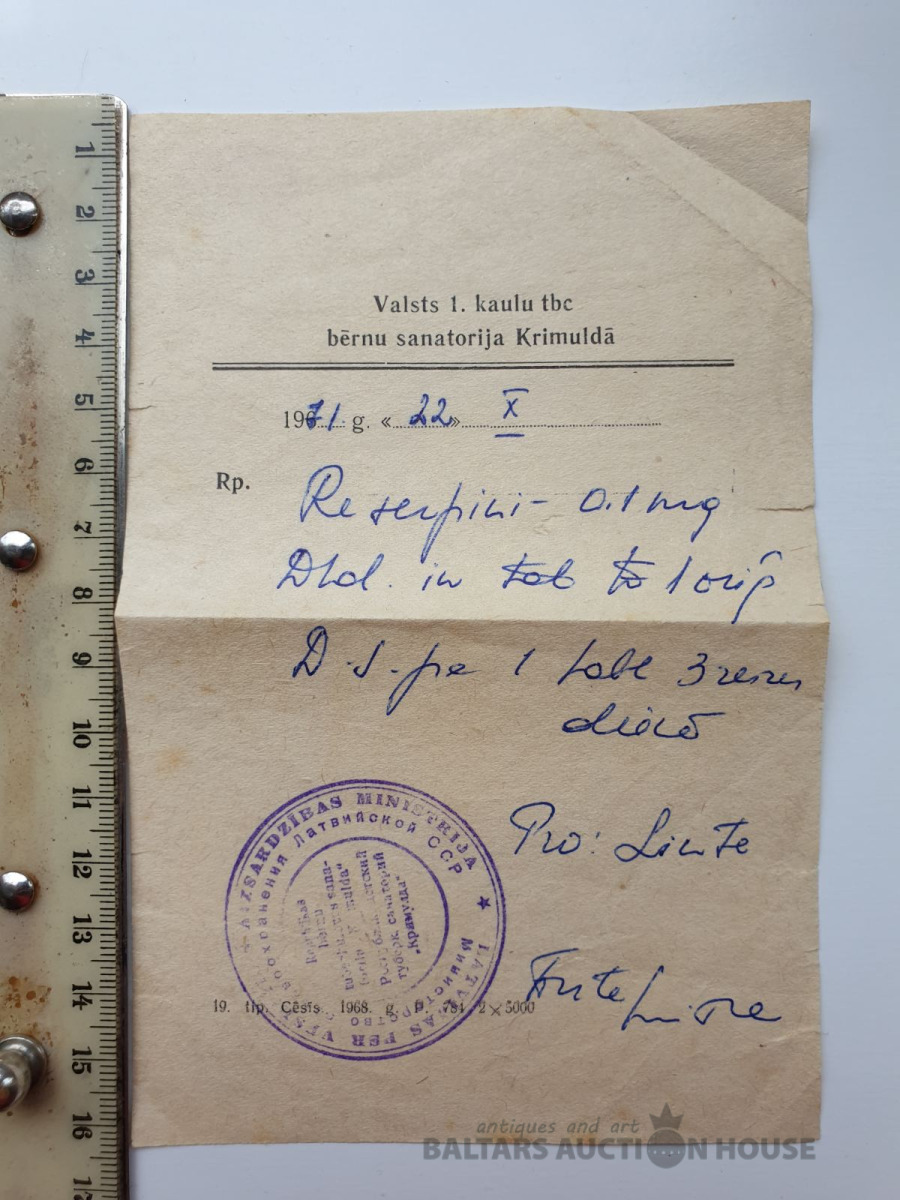 Valsts 1. kaulu tbc
bērnu sanatorija Krimuldā
1971 g. « 22 » X
Rp.
Reserpini - 0.1 mg
Dtd. in tab
D.S. pa 1 tabl 3 reizes
dienā
Pro: Linte
LATVIJAS PSR VESELĪBAS AIZSARDZĪBAS MINISTRIJA
Министерство здравоохранения Латвийской ССР
19. tip. Cēsīs 1968. g. P. 781 2×5000
antiques and art
BALTARS AUCTION HOUSE
1
2
3
4
5
6
7
8
9
10
11
12
13
14
15
16